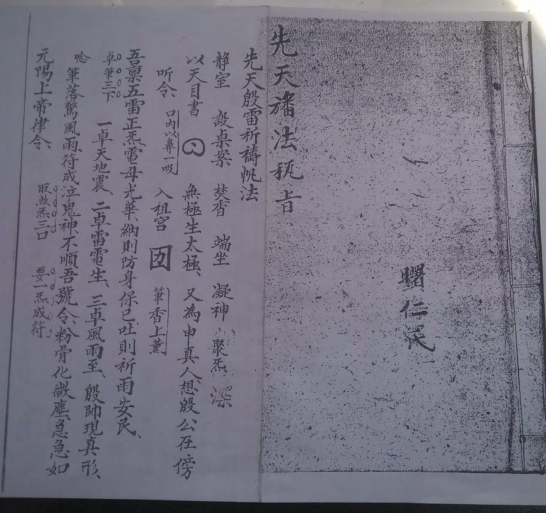 先天旛法秘旨
曙仁
先天殷雷祈禱帆法
静室 設桌案 焚香 端坐 凝神 聚炁 深
以天目書 無極生太極、又為申真人、想殷公在傍
听令、口内以鼻一吸 入祖宫 筆香上薰
吾禀五雷正炁電母光華、納則防身保己吐則祈雨安民、
卓筆三下 一卓天地震、二卓雷電生、三卓風雨至、殷帥現真形、
唸 筆落驚風雨、符成泣鬼神、不順吾號令、粉骨化微塵、急急如
元陽上帝律令、 取煞炁三口 要一炁成符、